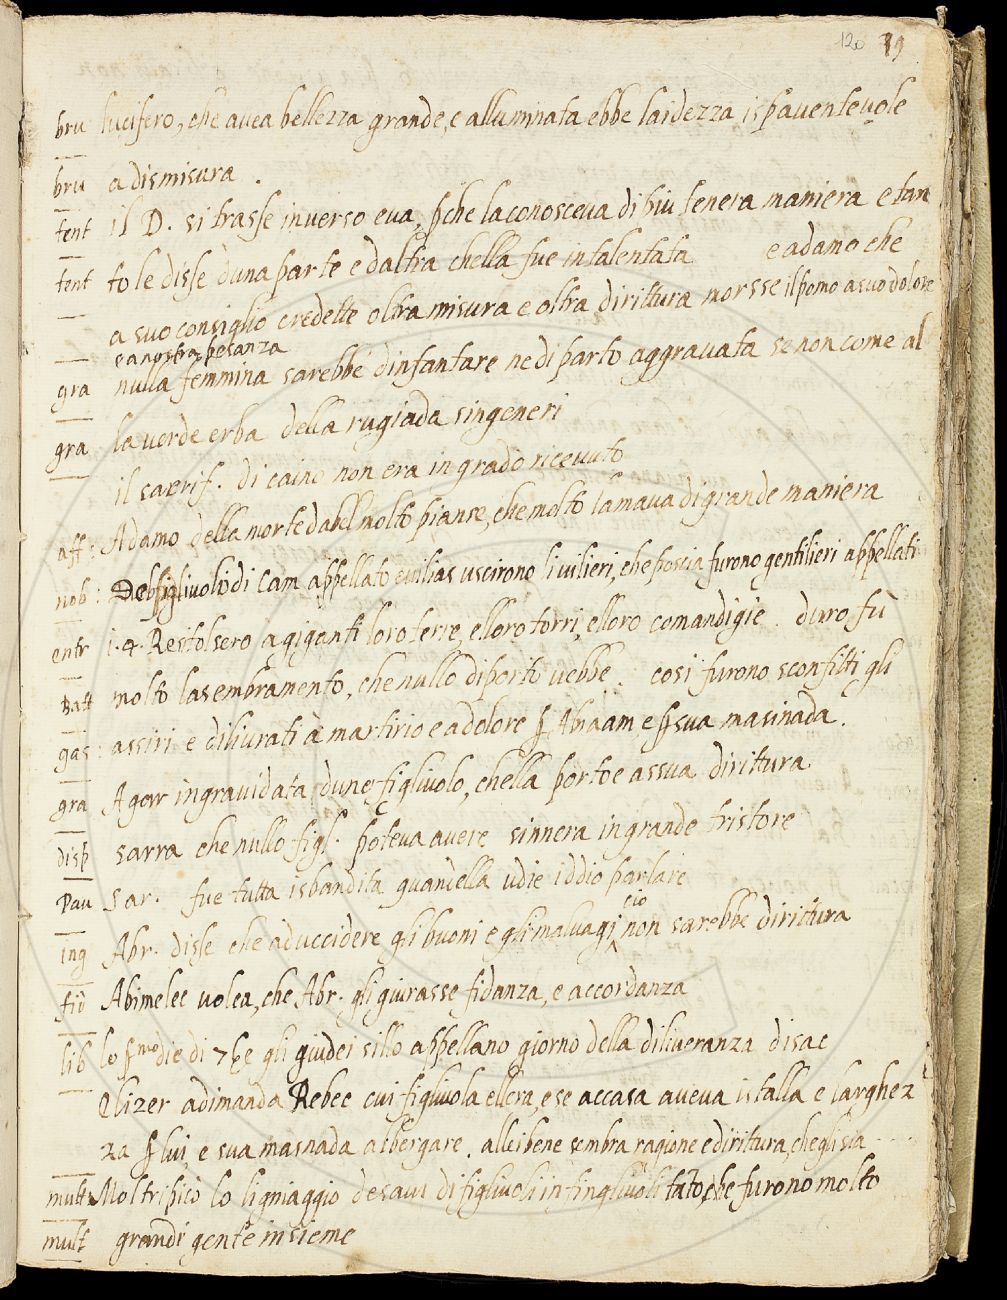 120 79
bru lucifero, che avea bellezza grande, e alluminata ebbe laidezza ispaventevole
bru a dismisura.
tent il D. si trasse inverso eva, che la conosceva di piu tenera maniera e tan
tent to le disse duna parte e daltra chella fue intalentata e adamo che
a suo consiglio credette oltra misura e oltra dirittura morsse il pomo a suo dolore
e a nostra pesanza
gra nulla femmina sarebbe dinfantare ne di parto aggravata se non come al
gra la verde erba della rugiada singeneri
il sacrif. di caino non era in grado ricevuto
aff: Adamo della morte dabel molto pianse, che molto lamava di grande maniera
nob: figlivolo di Cam appellato evilias uscirono li vilieri, che poscia furono gentilieri appellati
entr i. 4. Re si tolsero a giganti loro terre, elloro torri, elloro comandigie. duro fù
Batt molto lasembramento, che nullo diporto vebbe. cosi furono sconfitti gli
gas: assiri e dilivrati à martirio e a dolore Abraam e sua masinada.
gra Agar ingravidata dun figlivolo, chella portoe assua dirittura
disp sarra che nullo figl. poteva avere sinnera in grande tristore
Pau Sar. fue tutta isbandita quandella udie iddio parlare
cio
ing Abr. disse che aduccidere gli buoni e gli malvagi non sarebbe dirittura
fid Abimelec volea, che Abr. gli giurasse fidanza, e accordanza
lib lo die di 7 gli giudei sillo appellano giorno della diliveranza disac
Elizer adimanda Rebec cui figlivola ellera, e se accasa aveva istalla e larghez
za lui, e sua masnada albergare. allei bene sembra ragione e dirittura, che gli sia
mult Moltripicò lo ligniaggio desau di figlivoli in finglivoli tãto, che furono molto
mult grandi gente insieme